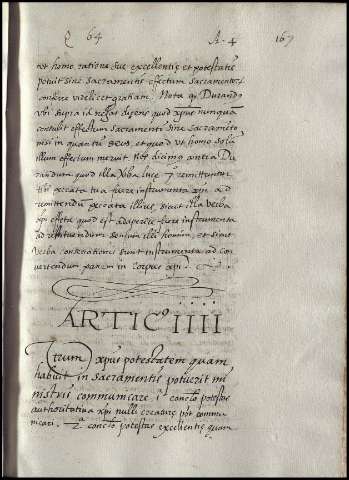 Q 64 A. 4 167
ut homo ratione suæ excellentiæ et potestatis
potuit sine sacramentis effectum sacramentorum
conferre videlicet gratiam. Nota qd Durandus
ubi supra id negat dicens quod xp̄us nunquam
contulit effectum sacramenti sine sacramento
nisi in quantum deus, et quod ut homo solum
illum effectum meruit. Nos dicimus contra Du
randum quod illa verba luce 7 remittuntur
tibi peccata tua fuere instrumenta xp̄i ad
remittendum peccata illius, sicut illa verba
xp̄i effeta quod est adaperire fuere instrumenta
ad restituendum illi homini, et sicut
verba consecrationis sunt instrumenta ad con
vertendum panem in corpus xp̄i.
ARTICº IIII
Utrum xp̄us potestatem quam
habuit in sacramentis potuerit mi
nistris communicare. 1ª conclo potestas
authoritativa xp̄i nulli creaturæ pōt commu
nicari. 2ª conclo potestas excellentiæ quam